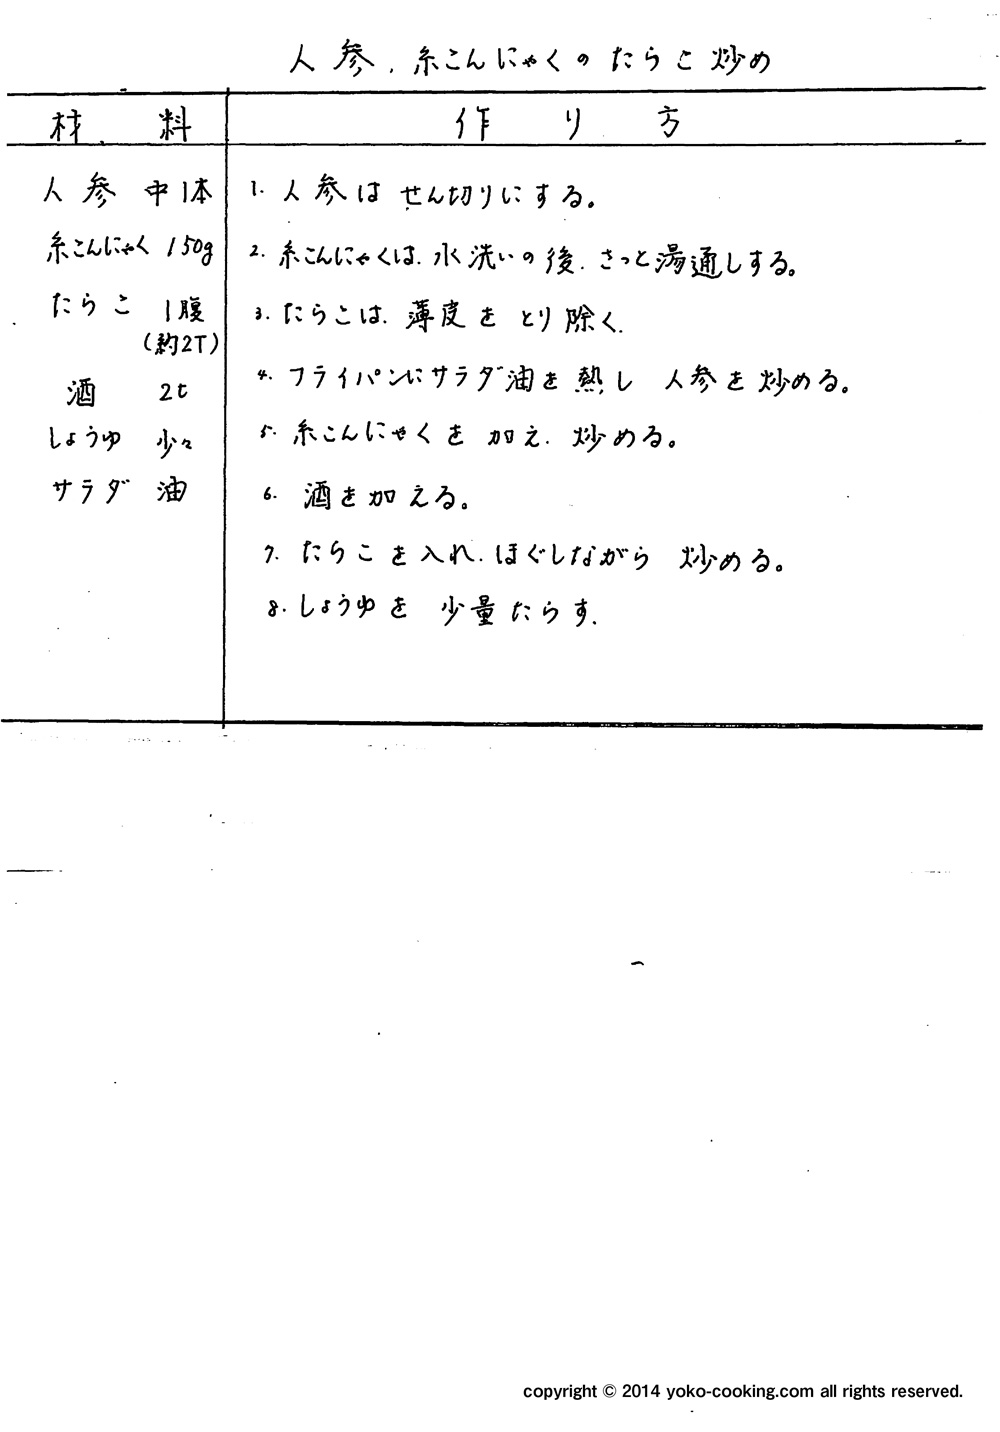 人参、糸こんにゃくのたらこ炒め
材 料
作 り 方
人参 中1本
糸こんにゃく 150g
たらこ 1腹
(約2T)
酒 2t
しょうゆ 少々
サラダ油
1. 人参は せん切りにする。
2. 糸こんにゃくは、水洗いの後、さっと湯通しする。
3. たらこは、薄皮を とり除く.
4. フライパンにサラダ油を熱し 人参を炒める。
5. 糸こんにゃくを 加え、炒める。
6. 酒を加える。
7. たらこを入れ、ほぐしながら 炒める。
8. しょうゆを 少量たらす.
copyright © 2014 yoko-cooking.com all rights reserved.